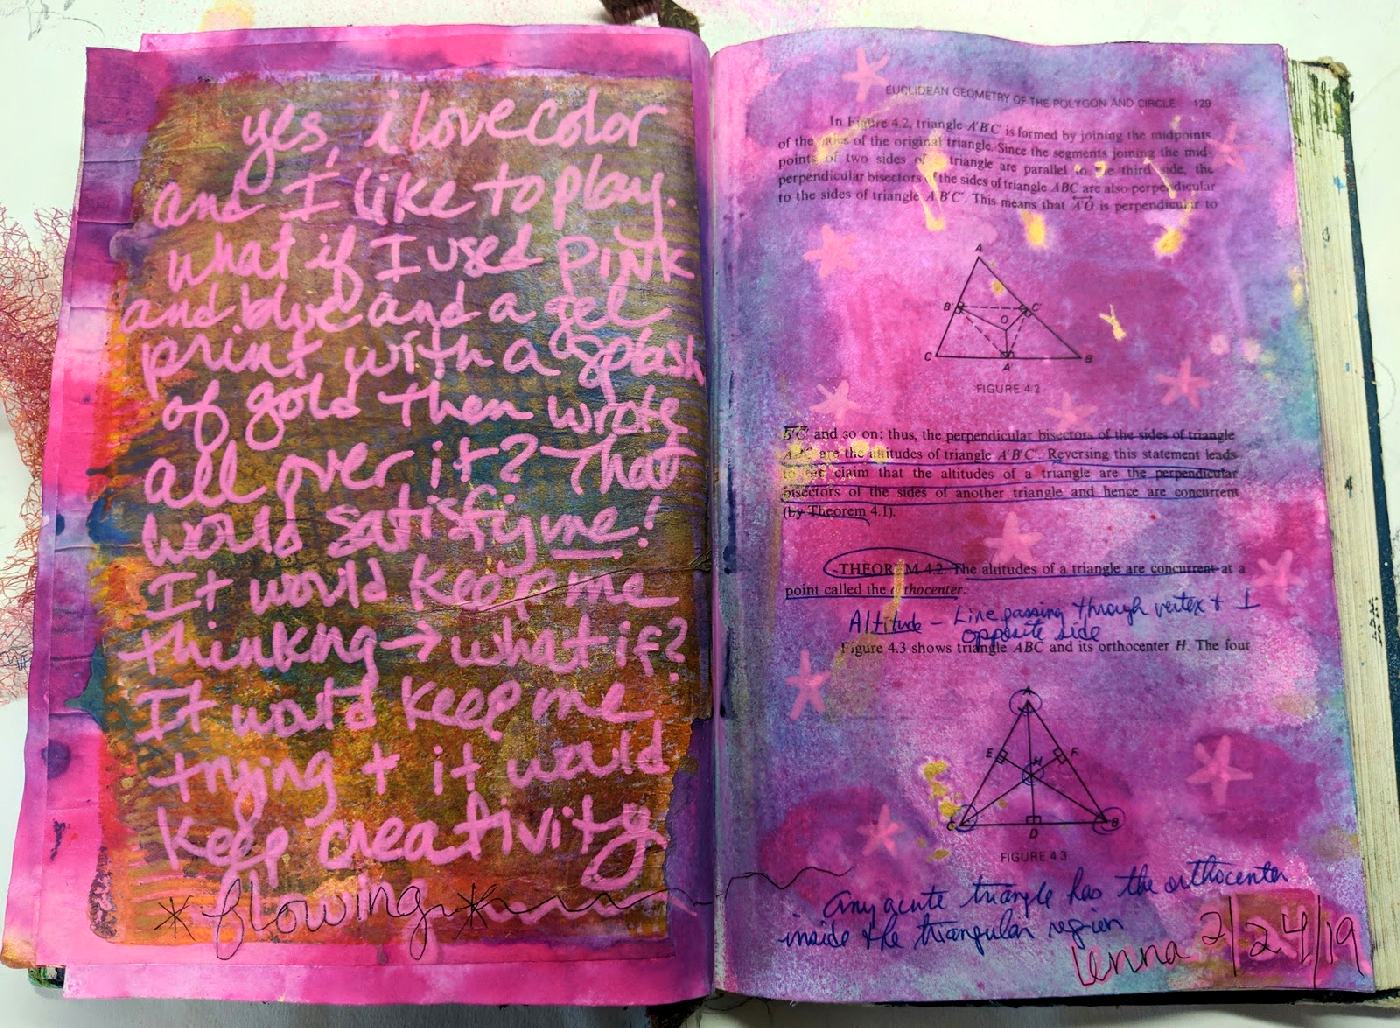 yes, i love color
and I like to play.
what if I used pink
and blue and a gel
print with a splash
of gold then wrote
all over it? That
would satisfy me!
It would keep me
thinking → what if?
It would keep me
trying + it would
keep creativity
* flowing *
EUCLIDEAN GEOMETRY OF THE POLYGON AND CIRCLE 129
In Figure 4.2, triangle A'B'C' is formed by joining the midpoints
of the sides of the original triangle. Since the segments joining the mid-
points of two sides of a triangle are parallel to the third side, the
perpendicular bisectors of the sides of triangle ABC are also perpendicular
to the sides of triangle A'B'C'. This means that A'O is perpendicular to
A
B' C'
O
C A' B
FIGURE 4.2
B'C' and so on; thus, the perpendicular bisectors of the sides of triangle
ABC are the altitudes of triangle A'B'C'. Reversing this statement leads
claim that the altitudes of a triangle are the perpendicular
bisectors of the sides of another triangle and hence are concurrent
(by Theorem 4.1).
THEOREM 4.2 The altitudes of a triangle are concurrent at a
point called the orthocenter.
Altitude – Line passing through vertex + ⊥
opposite side
Figure 4.3 shows triangle ABC and its orthocenter H. The four
A
E F
H
C D B
FIGURE 4.3
any acute triangle has the orthocenter
inside the triangular region
Lenna 2/24/19